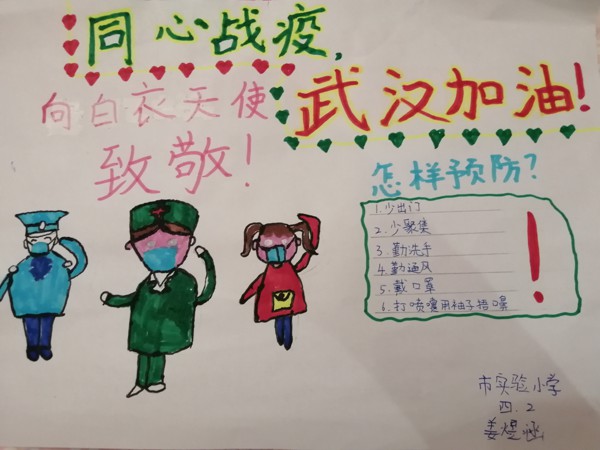 同心战疫,
武汉加油!
向白衣天使
致敬!
怎样预防?
1.少出门
2.少聚集
3.勤洗手
4.勤通风
5.戴口罩
6.打喷嚏用袖子捂嘴
!
市实验小学
四.2
姜煜涵